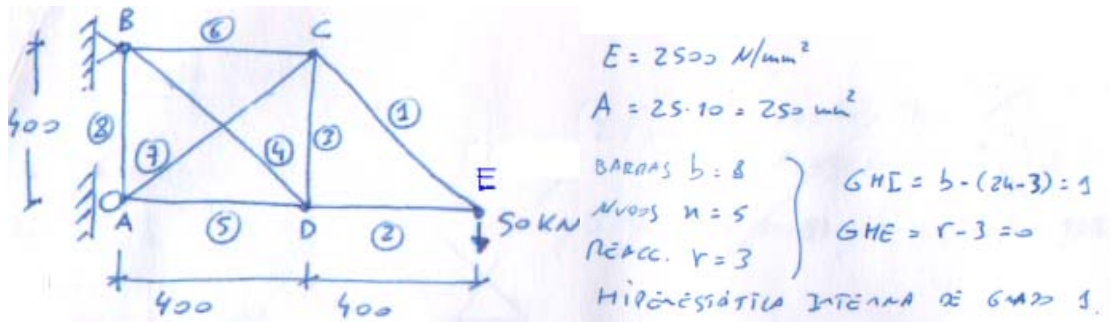 B
6
C
400
8
7
4
3
1
E
A
5
D
2
50 KN
400
400
E = 2500 N/mm²
A = 25·10 = 250 mm²
BARRAS b = 8
NUDOS n = 5
REACC. r = 3
GHI = b - (2n-3) = 1
GHE = r - 3 = 0
HIPERESTÁTICA INTERNA DE GRADO 1.